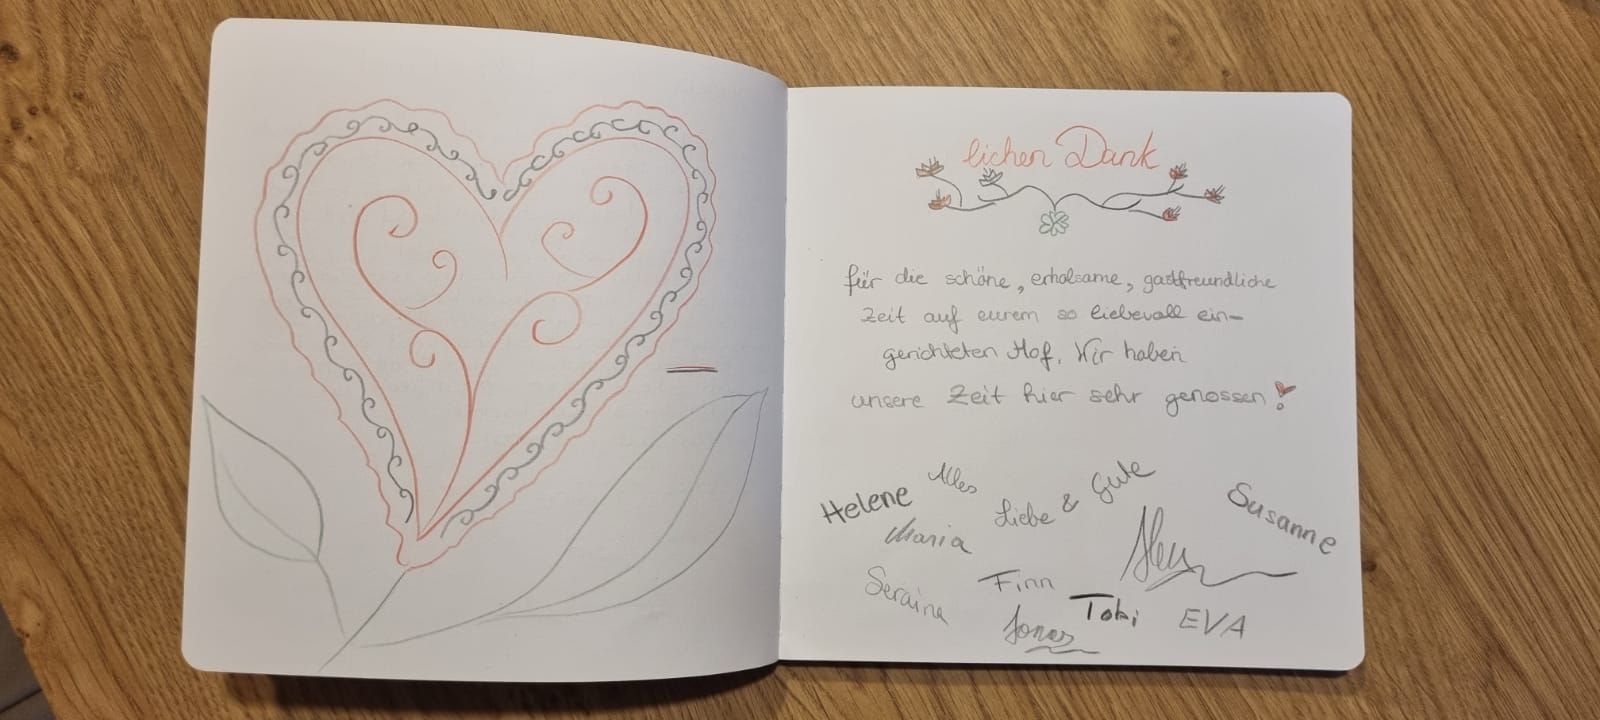 lichen Dank
für die schöne, erholsame, gastfreundliche
Zeit auf eurem so liebevoll ein-
gerichteten Hof. Wir haben
unsere Zeit hier sehr genossen!
Alles
Liebe & Gute
Helene
Maria
Susanne
Seraina
Finn
Jonas
Tobi
EVA